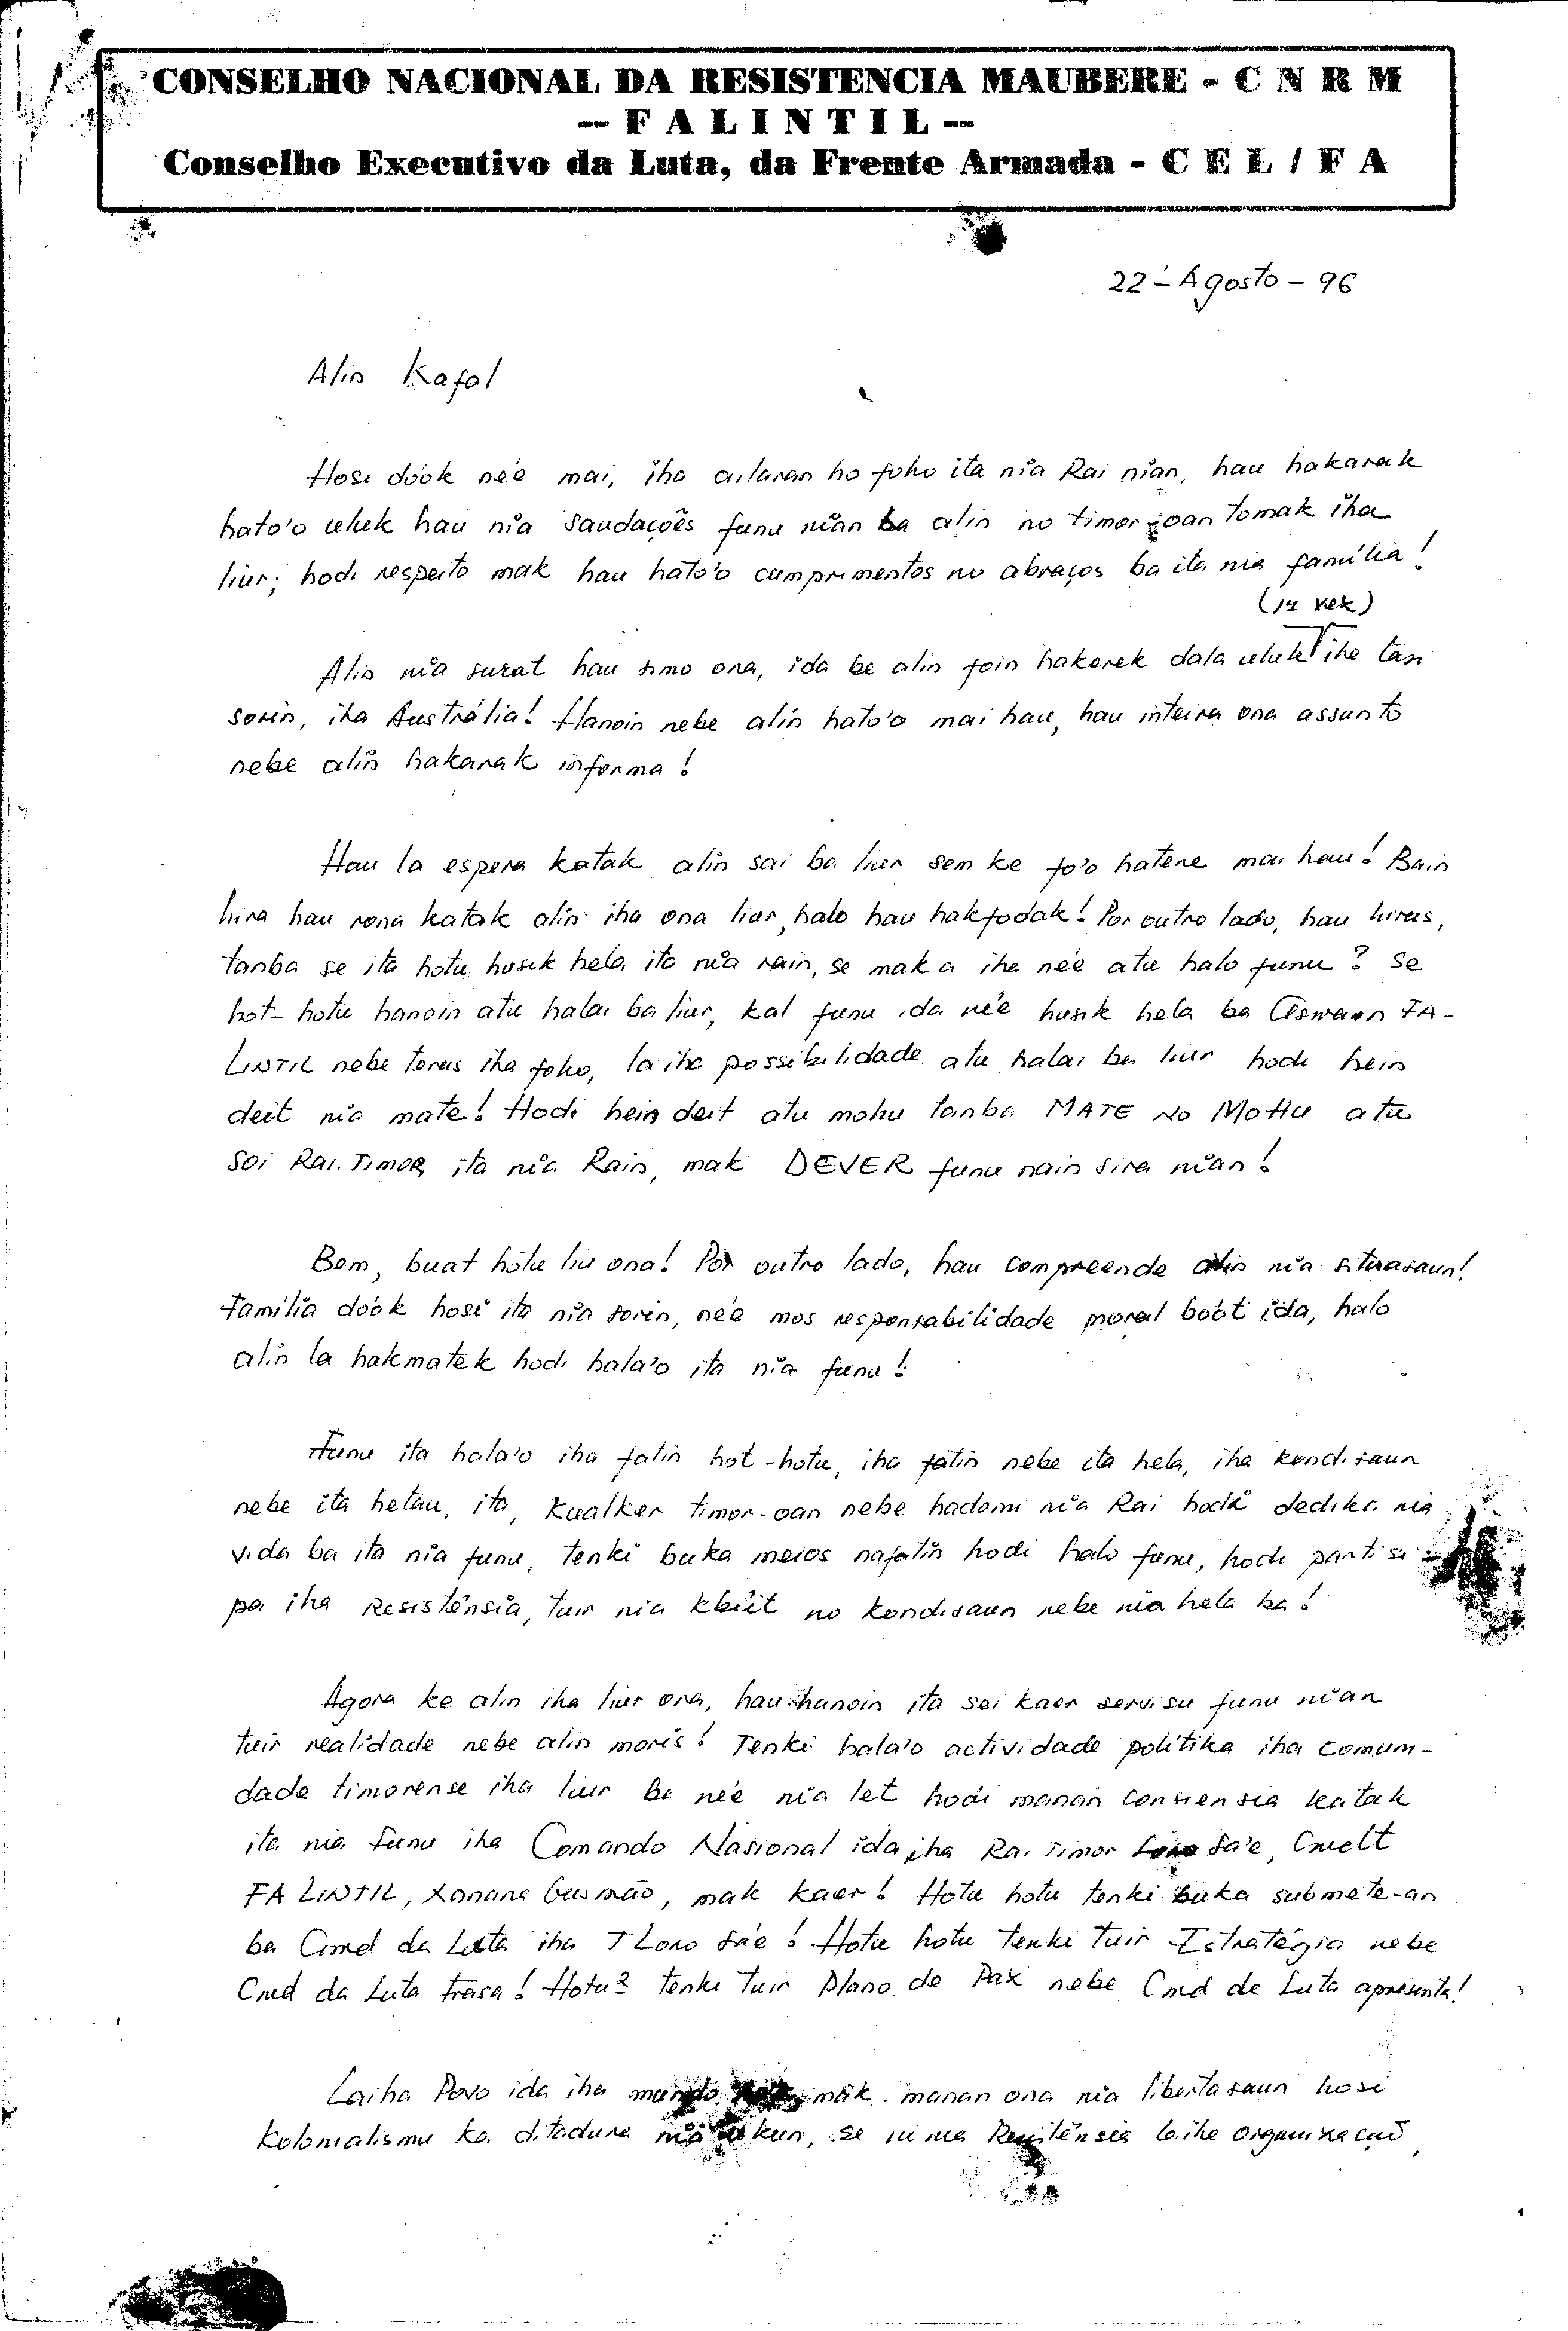 CONSELHO NACIONAL DA RESISTENCIA MAUBERE - C N R M
-- F A L I N T I L --
Conselho Executivo da Luta, da Frente Armada - C E L / F A
22 - Agosto - 96
Alin Kafal
Hosi dóok née mai, iha ailaran ho foho ita nia Rai nian, hau hakarak
hato'o uluk hau nia saudações funu nian ba alin no timor-oan tomak iha
liur; hodi respeito mak hau hato'o cumprimentos no abraços ba ita nia família!
(1ª vek)
Alin nia surat hau simo ona, ida be alin foin hakerek dala uluk iha tasi
sorin, iha Austrália! Hanoin nebe alin hato'o mai hau, hau inteira ona assunto
nebe alin hakarak informa!
Hau la espera katak alin sai ba liur sem ke fo'o hatene mai hau! Bain
hira hau rona katak alin iha ona liur, halo hau hakfodak! Por outro lado, hau hirus,
tanba se ita hotu husik hela ita nia rain, se mak a iha née atu halo funu? Se
hot-hotu hanoin atu halai ba liur, kal funu ida née husik hela ba Aswain FA-
LINTIL nebe terus iha foho, la iha possibilidade atu halai ba liur hodi hein
deit nia mate! Hodi hein deit atu mohu tanba MATE NO MOHU atu
soi Rai-TIMOR, ita nia Rain, mak DEVER funu nain sira nian!
Bem, buat hotu liu ona! Por outro lado, hau compreende alin nia situasaun!
Família dóok hosi ita nia sorin, née mos responsabilidade moral boót ida, halo
alin la hakmatek hodi hala'o ita nia funu!
Funu ita hala'o iha fatin hot-hotu, iha fatin nebe ita hela, iha kondisaun
nebe ita hetau, ita, kualker timor-oan nebe hadomi nia Rai hodi dedika nia
vida ba ita nia funu, tenki buka meios nafatin hodi halo funu, hodi partisi-
pa iha Resistênsia, tuir nia kbiit no kondisaun nebe nia hela ba!
Agora ke alin iha liur ona, hau hanoin ita sei kaer servisu funu nian
tuir realidade nebe alin moris! Tenki hala'o actividade polítika iha comuni-
dade timorense iha liur ba née nia let hodi manan consiensia katak
ita nia funu iha Comando Nasional ida, iha Rai Timor Loro Sa'e, Cmdt
FALINTIL, Xanana Gusmão, mak kaer! Hotu hotu tenki buka submete-an
ba Cmd da Luta iha T Loro Sa'e! Hotu hotu tenki tuir Estratégia nebe
Cmd da Luta trasa! Hotu2 tenki tuir Plano de Paz nebe Cmd de Luta apresenta!
Laiha Povo ida iha mundo mak manan ona nia libertasaun hosi
kolonialismu ka ditadura nia ukun, se nia Resistênsia laiha organizaçaõ,